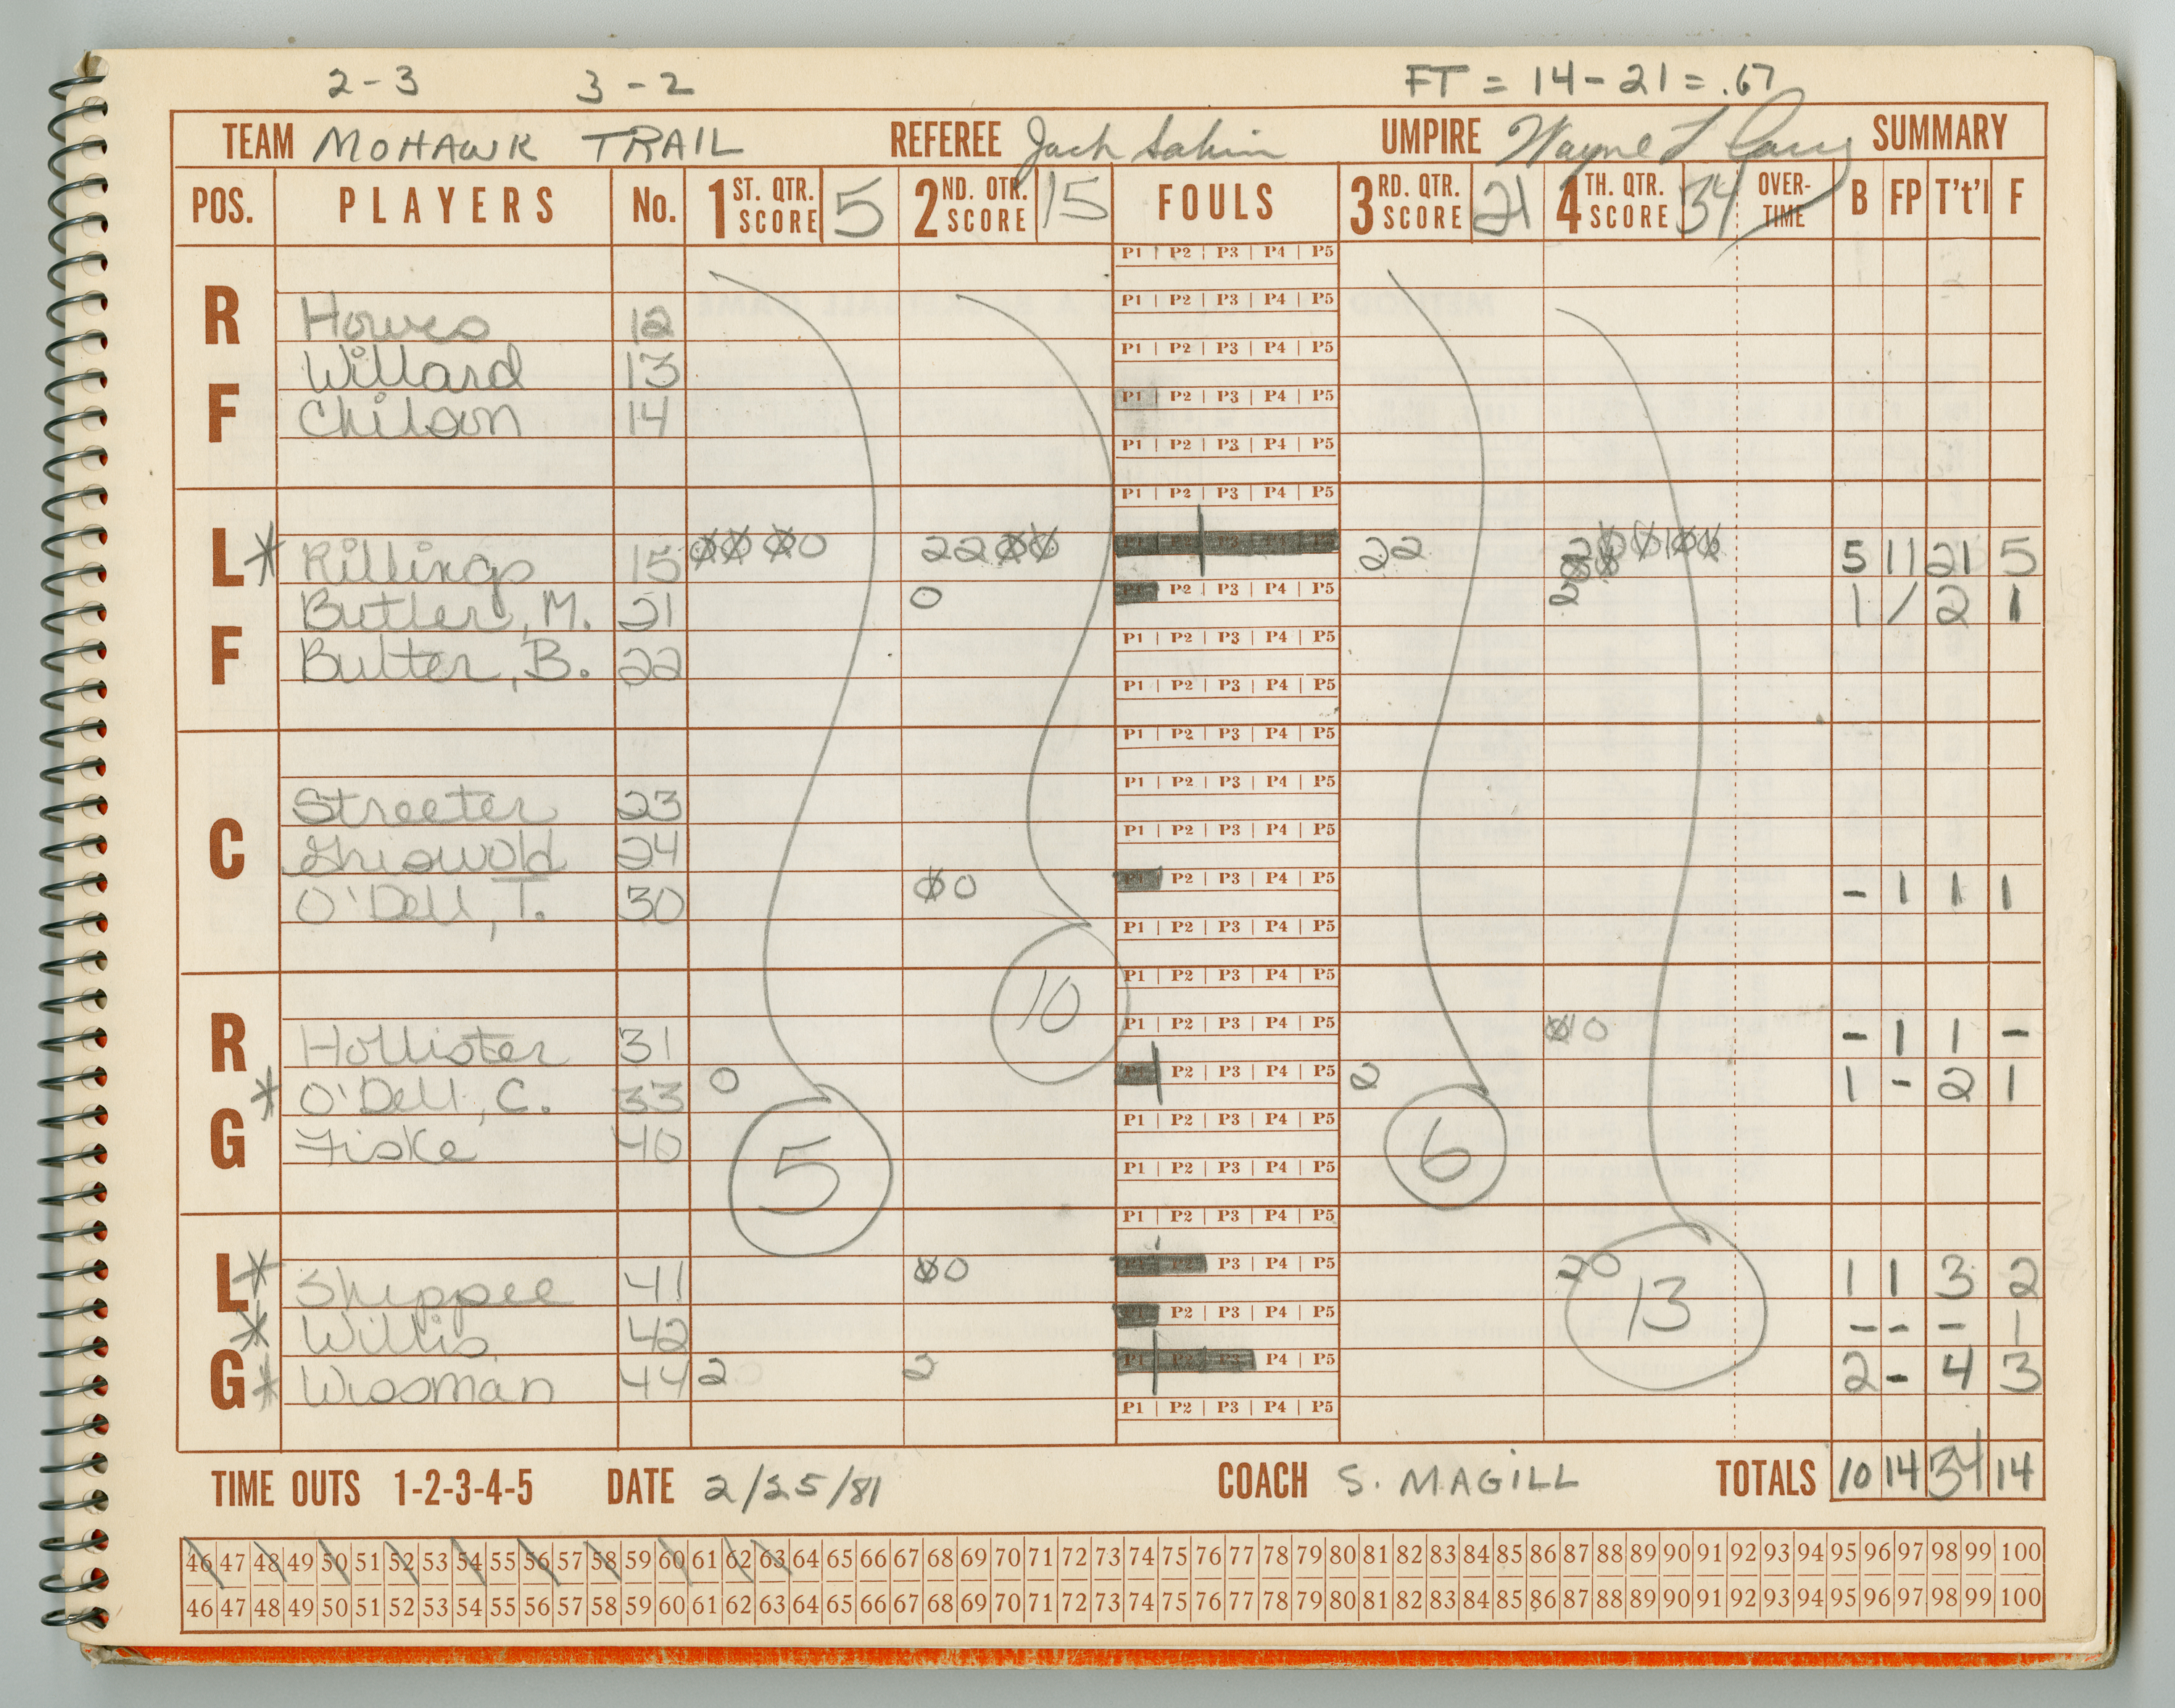 2-3 3-2 FT = 14-21 = .67
TEAM MOHAWK TRAIL REFEREE Jack UMPIRE Wayne SUMMARY
POS. PLAYERS No. 1 ST. QTR. SCORE 5 2 ND. QTR. SCORE 15 FOULS 3 RD. QTR. SCORE 21 4 TH. QTR. SCORE 34 OVER-TIME B FP T't'l F
P1 | P2 | P3 | P4 | P5
R
Howes 12 P1 | P2 | P3 | P4 | P5
Willard 13 P1 | P2 | P3 | P4 | P5
F
Chilson 14 P1 | P2 | P3 | P4 | P5
P1 | P2 | P3 | P4 | P5
P1 | P2 | P3 | P4 | P5
L * Killings 15 0000 2200 P1 P2 P3 P4 P5 22 5 11 21 5
Butler, M. 21 0 P2 | P3 | P4 | P5 2 1 / 2 1
F
Butler, B. 22 P1 | P2 | P3 | P4 | P5
P1 | P2 | P3 | P4 | P5
P1 | P2 | P3 | P4 | P5
Streeter 23 P1 | P2 | P3 | P4 | P5
C
Griswold 24 P1 | P2 | P3 | P4 | P5
O'Dell, T. 30 00 P1 P2 | P3 | P4 | P5 - 1 1 1
P1 | P2 | P3 | P4 | P5
10
P1 | P2 | P3 | P4 | P5
R
Hollister 31 P1 | P2 | P3 | P4 | P5 0 - 1 1 -
* O'Dell, C. 33 0 P2 | P3 | P4 | P5 2 1 - 2 1
G
Fiske 40 P1 | P2 | P3 | P4 | P5
5 P1 | P2 | P3 | P4 | P5 6
P1 | P2 | P3 | P4 | P5
L * Shippee 41 00 P1 P2 P3 | P4 | P5 20 1 1 3 2
* Willis 42 P2 | P3 | P4 | P5 13 - - - 1
G * Wissman 44 2 2 P1 P2 P3 P4 | P5 2 - 4 3
P1 | P2 | P3 | P4 | P5
TIME OUTS 1-2-3-4-5 DATE 2/25/81 COACH S. MAGILL TOTALS 10 14 34 14
46 47 48 49 50 51 52 53 54 55 56 57 58 59 60 61 62 63 64 65 66 67 68 69 70 71 72 73 74 75 76 77 78 79 80 81 82 83 84 85 86 87 88 89 90 91 92 93 94 95 96 97 98 99 100
46 47 48 49 50 51 52 53 54 55 56 57 58 59 60 61 62 63 64 65 66 67 68 69 70 71 72 73 74 75 76 77 78 79 80 81 82 83 84 85 86 87 88 89 90 91 92 93 94 95 96 97 98 99 100